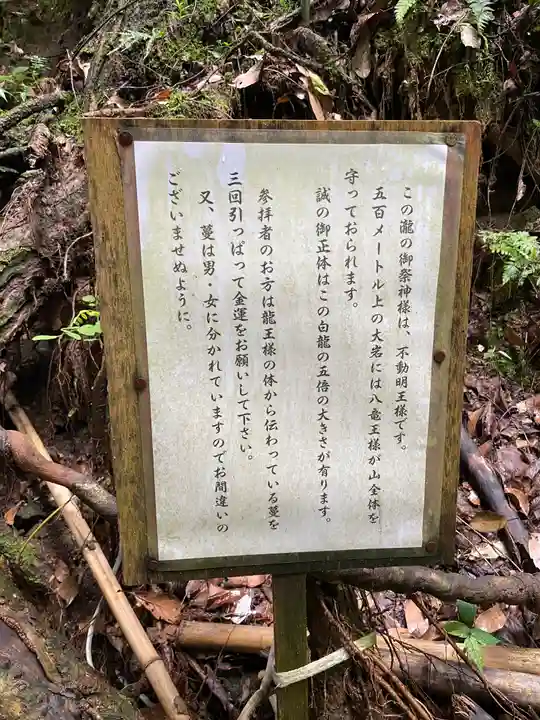 この瀧の御祭神様は、不動明王様です。
五百メートル上の大岩には八竜王様が山全体を
守っておられます。
誠の御正体はこの白龍の五倍の大きさが有ります。
参拝者のお方は龍王様の体から伝わっている蔓を
三回引っぱって金運をお願いして下さい。
又、蔓は男・女に分かれていますのでお間違いの
ございませぬように。